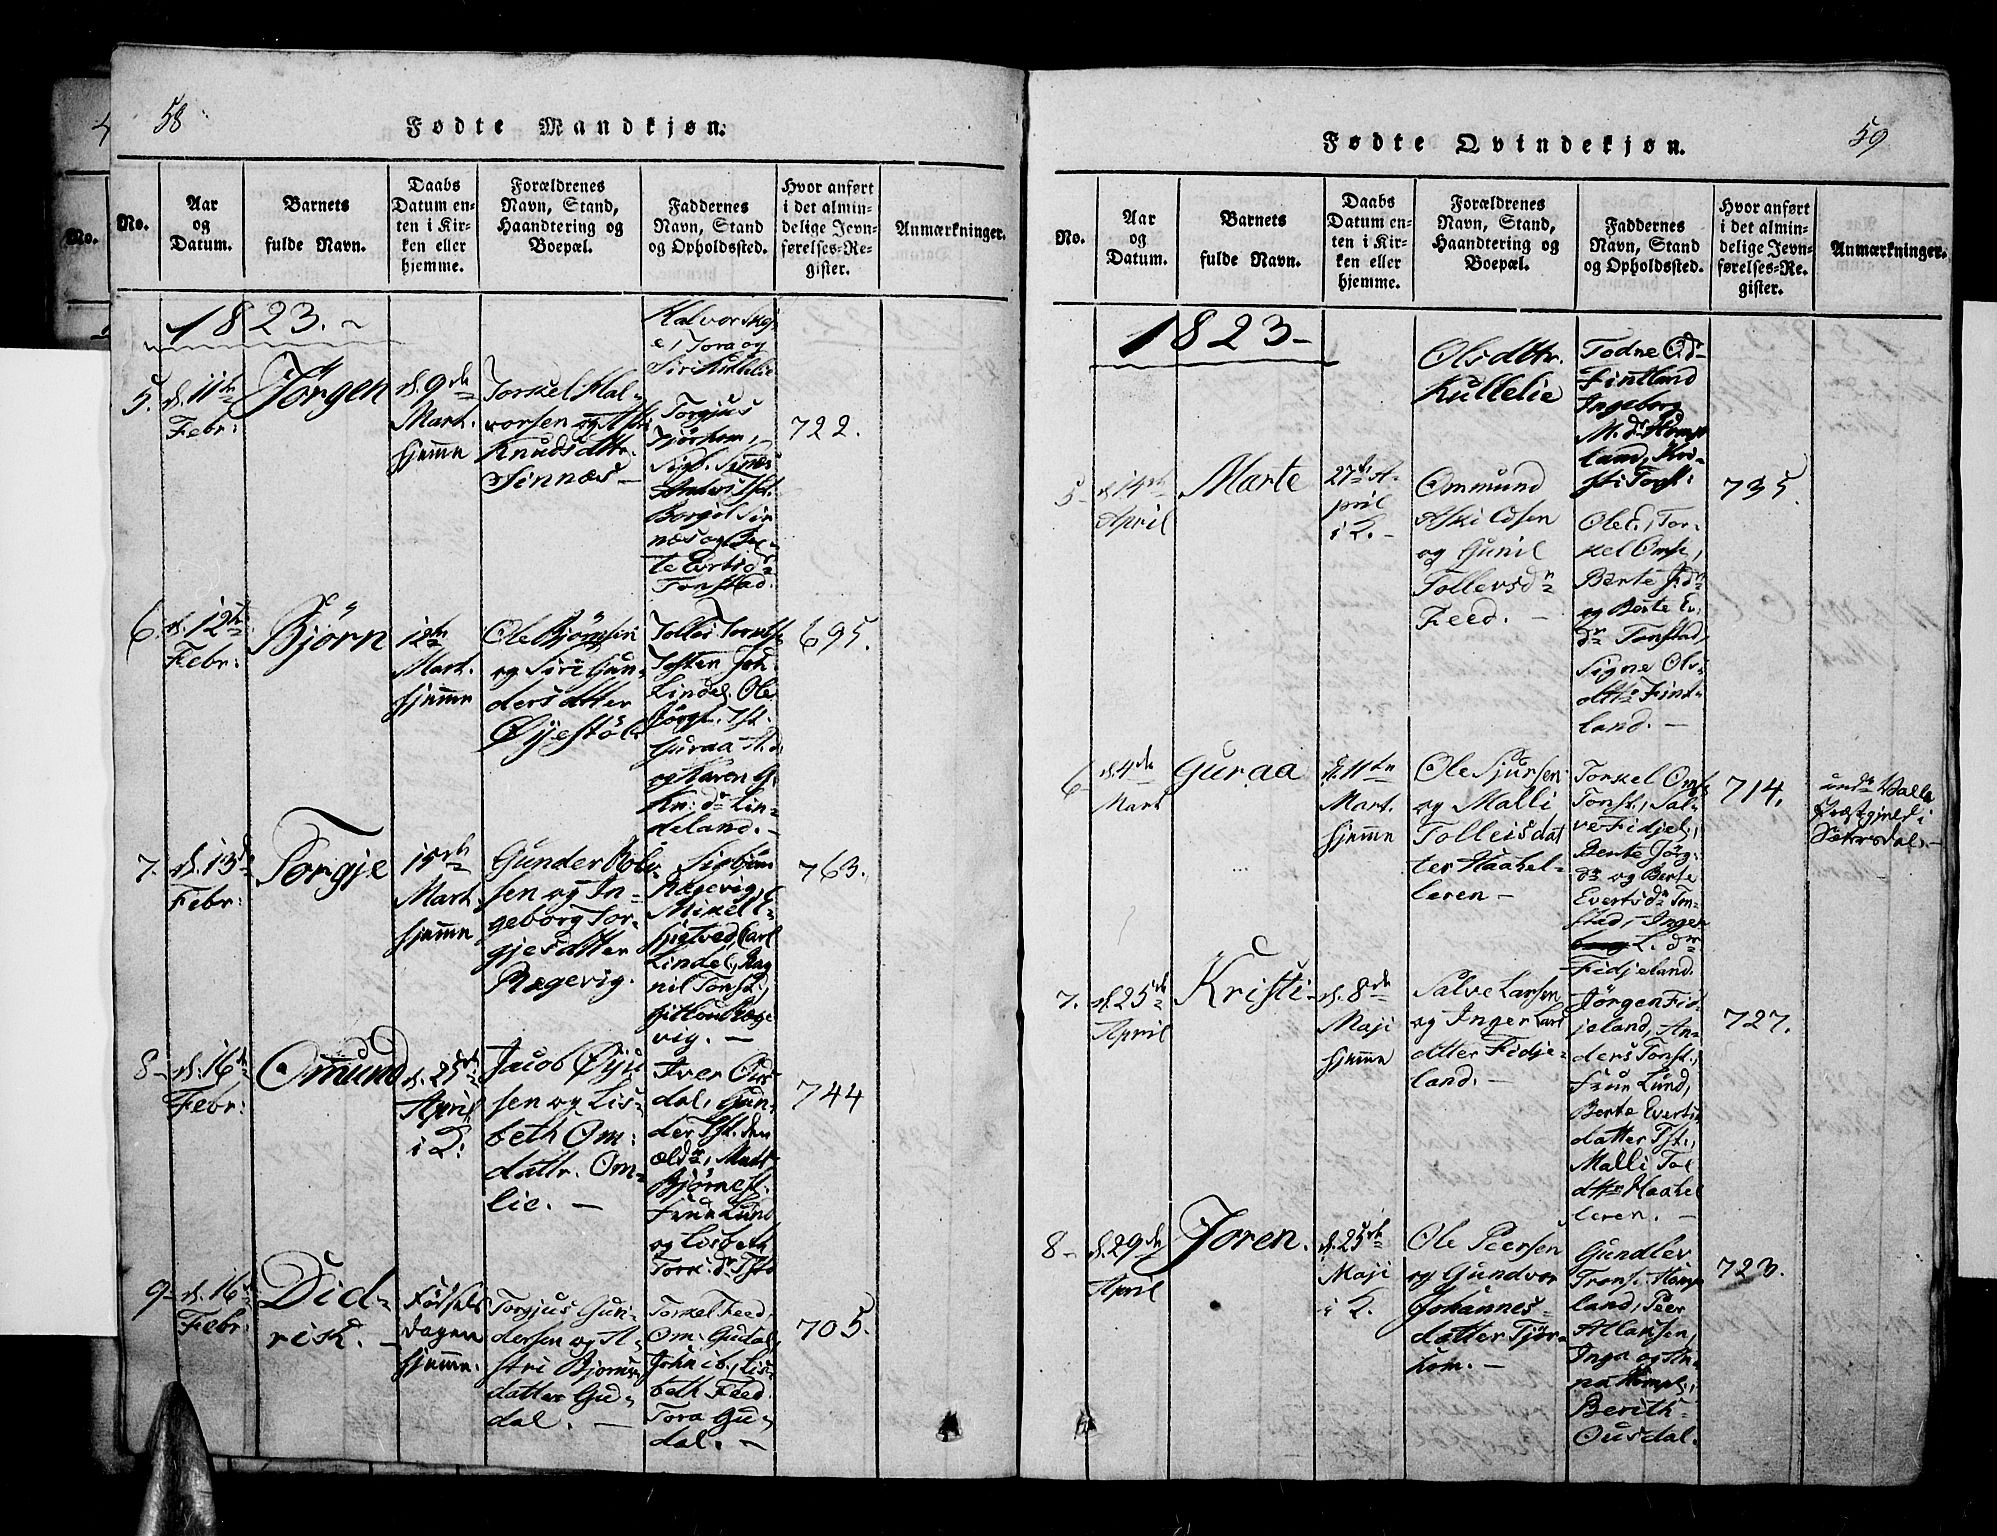 58
Fødte Mandkjøn.
No.
Aar
og
Datum.
Barnets
fulde Navn.
Daabs
Datum en-
ten i Kir-
ken eller
hjemme.
Forældrenes
Navn, Stand,
Haandtering og
Boepæl.
Faddernes
Navn, Stand
og Opholdssted.
Hvor anført
i det almin-
delige Jevn-
førelses-Re-
gister.
Anmærkninger.
1823.
Tora og
Siri Kullelie
5.
d. 11te
Febr:
Jörgen
d. 9de
Mart.
hjemme
Torkel Hal-
vorsen og
Knudsdttr.
Sinnæs
Torgjus
Tjörhom,
Sigb. Sinnæs
Anders Tst.
Borgil Sin-
næs og Ber-
te Evertsd
Tonstad.
722.
6.
d. 12te
Febr:
Bjørn
12te
Mart.
hjemme
Ole Bjömsen
og Siri Gun-
dersdatter
Øyestöl
Josten Joh.
Lindel. Ole
Jörg. Tst.
Guraa
og Karen
Kn: dr Lin-
deland.
695.
7.
d. 13de
Febr:
Torgje
15de
Mart.
hjemme
Gunder
sen og In-
geborg Tor-
gjesdatter
Rægevig.
Sigbjörn
Rægevig,
Mikel
Carl
Lindel., Rag
nil Tonst.,
vig.
763.
8
d. 16de
Febr:
Omund
d. 25de
April
i K:
Jacob Øyu
sen og Lis-
beth Om:
dattr. Om-
lie.
Iver Ous
dal, Gun-
der Tst. den
ældr, Mart
Bjørnest.
Frue Lund
og Lisbeth
Tork: dr Tst
744
9
d. 16de
Febr:
Did-
rik.
Födsels
dagen
hjemme.
Torgjus Gun-
dersen og A-
stri Bjorns
datter Gu-
dal.
Torkel Feed.
Om. Gudal,
John ib., Lis-
beth Feed.
Tora Gu-
dal.
705.
59
Fødte Qvindekjøn.
No.
Aar
og
Datum.
Barnets
fulde Navn.
Daabs
Datum en-
ten i Kir-
ken eller
hjemme.
Forældrenes
Navn, Stand,
Haandtering og
Boepæl.
Faddernes
Navn, Stand
og Opholdssted.
Hvor anført
i det almin-
delige Jevn-
førelses-Re-
gister.
Anmærkninger.
1823
Olsdttr.
Kullelie
Todne
Fintland
Ingeborg
M. dr Homp
land, Kri-
sti Tonst:
5
d. 14de
April
Marte
27de A-
pril
i K.
Ommund
Askildsen
og Gunil
Tollevsdr
Feed.
Ole F., Tor-
kel Omse,
Berte Jdr
og Berte Ev.
dr Tonstad,
Signe Ols-
dttr Fint-
land.
735.
6
d. 4de
Mart
Guraa
d. 11te
Mart.
hjemme
Ole Sjursen
og Malli
Tolleisdat
ter Haahel-
leren
Torkel Oms
Tonst., Sal-
ve Fidjel.,
Berte Jörg:
dr og Berte
Evertsdr Ton
stad, Inger
L. dr
Fidjeland.
714.
undr Valle
Præstegjeld i
Setersdal.
7.
d. 25de
April
Kristi
d. 8de
Maji
hjemme
Salve Larsen
og Inger Lars
datter Fidje-
land.
Jörgen Fid
jeland, An-
ders Tonst.,
Frue Lund,
Berte Everts
datter Tst.,
Malli Tol
dttr Haahel
leren.
727.
8
d. 29de
April
Joren.
d. 25de
Maji
i K.
Ole Peersen
og Gundvor
Johannes-
datter Tjör-
hom.
Gundlev
Trons. Homp
land, Peer
Atlansen,
Inga og An-
na Hompl.,
Berith
Ousdal.
723.